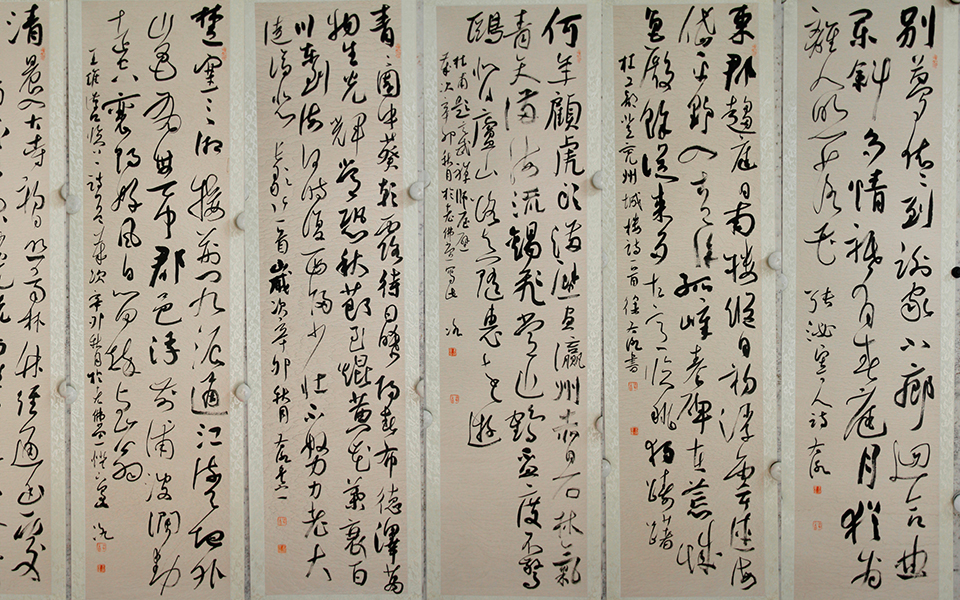 別夢依依到謝家小廊迴合曲
闌斜多情祇有春庭月猶為
離人照落花 張泌寄人詩
東郡趨庭日南樓縱目初浮雲連海
岱平野入青徐孤嶂秦碑在荒城
魯殿餘從來多古意臨眺獨躊躇
杜工部登兗州城樓詩一首
何年顧虎頭滿壁畫瀛州赤日石林氣
青天江海流錫飛常近鶴盃度不驚
鷗似得廬山路真隨惠遠遊
杜甫題玄武禪師屋壁
歲次辛卯秋月於老佛堂
青青園中葵朝露待日晞陽春布德澤萬
物生光輝常恐秋節至焜黃華葉衰百
川東到海何時復西歸少壯不努力老大
徒傷悲 長歌行一首 歲次辛卯秋月
楚塞三湘接荊門九派通江流天地外
山色有無中郡邑浮前浦波瀾動
遠空襄陽好風日留醉與山翁
王維漢江臨泛詩 歲次辛卯秋月於老佛堂
清晨入古寺初日照高林竹徑通幽處